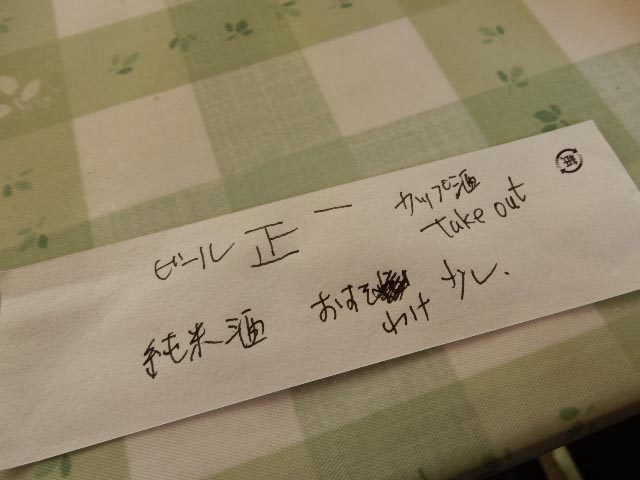 紙
ビール 正 一 カップ酒
Take out
純米酒 おすそ わけ 少し.